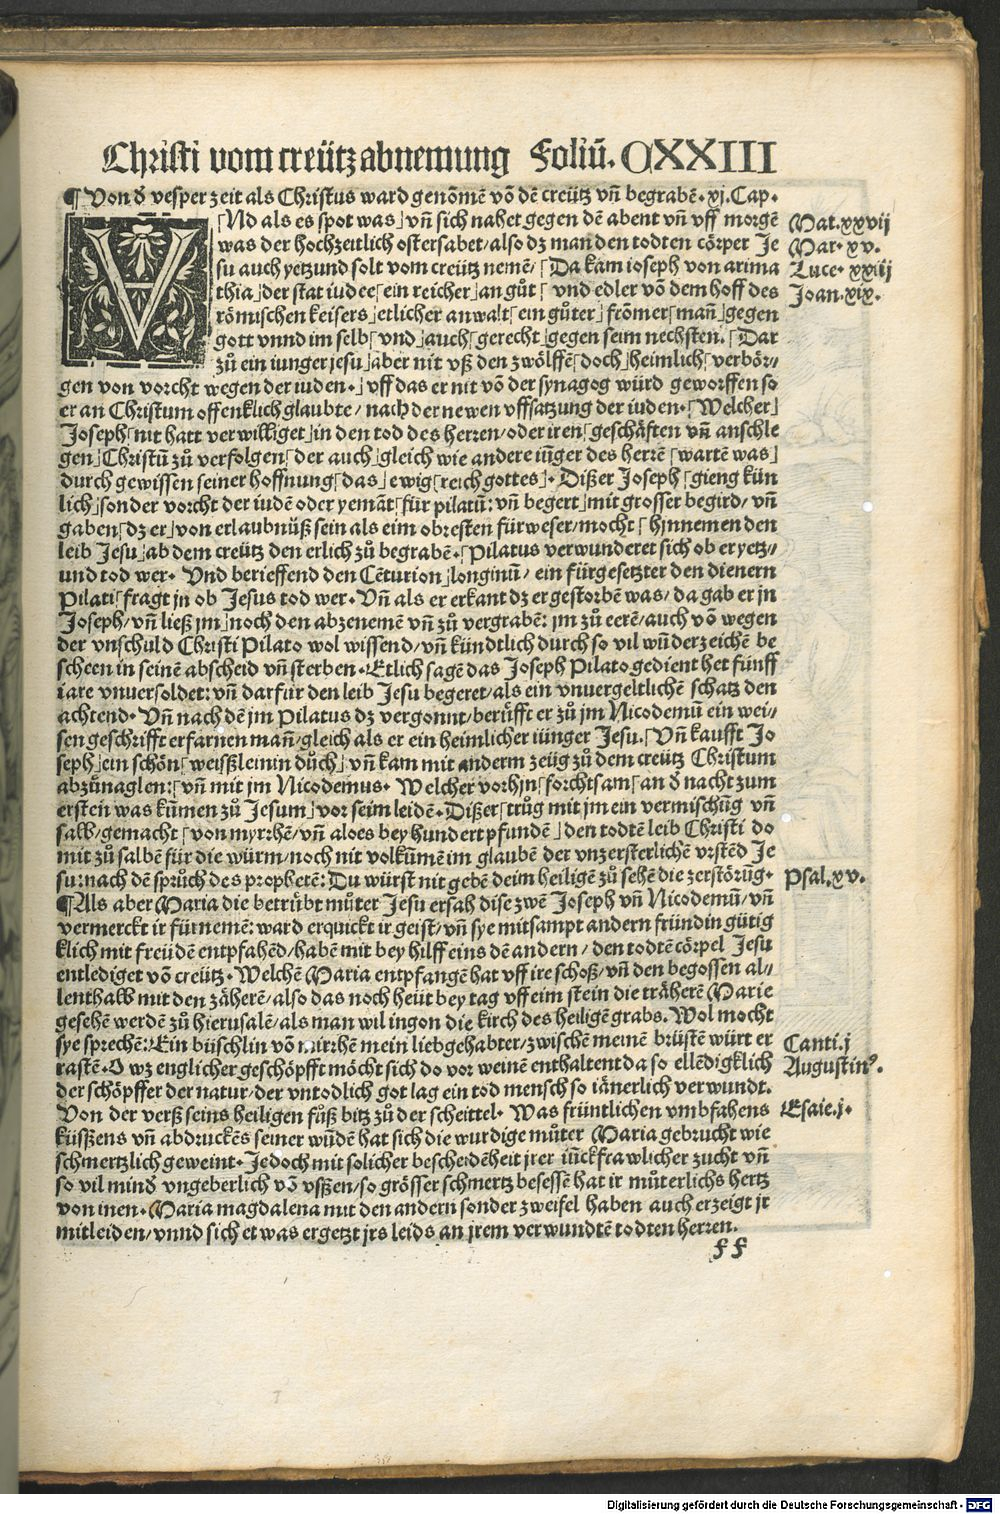 Christi vom creütz abnemung Foliū. CXXIII
¶ Von d̄ vesper zeit als Christus ward genōmē vō dē creütz vn̄ begrabē. xj. Cap.
VNd als es spot was⌋ vn̄ sich nahet gegen dē abent vn̄ vff morgē
was der hochzeitlich ostersabet/ also dz man den todten cörper Je
su auch yetzund solt vom creütz nemē/ ⌈Da kam ioseph von arima
thia⌋ der stat iudee⌈ein reicher⌋ an gůt⌈ vnd edler vō dem hoff des
römischen keisers⌋ etlicher anwalt⌈ein gůter⌋ frōmer⌈man̄⌋ gegen
gott vnnd im selb⌈vnd⌋ auch⌈gerecht⌋ gegen seim nechsten. ⌈Dar
zů ein iunger jesu⌋ aber nit vß den zwölffē⌈doch⌋ heimlich⌈verbör/
gen von vorcht wegen der iuden.⌋ vff das er nit vō der synagog würd geworffen so
er an Christum offenklich glaubte/ nach der newen vffsatzung der iuden. ⌈Welcher⌋
Joseph⌈nit hatt verwilliget⌋ in den tod des herren/ oder iren⌈geschäften vn̄ anschle
gen⌋ Christū zů verfolgen⌈der auch⌋ gleich wie andere iūger des herrē⌈wartē was⌋
durch gewissen seiner hoffnung⌈das⌋ ewig⌈reich gottes⌋. Dißer Joseph⌈gieng kün
lich⌋ sonder vorcht der iudē oder yemāt⌈für pilatū: vn̄ begert⌋ mit grosser begird/ vn̄
gaben⌈dz er⌋ von erlaubnüß sein als eim obresten fürweser/ mocht⌈hynnemen den
leib Jesu⌋ ab dem creütz den erlich zů begrabē. ⌈Pilatus verwunderet sich ob er yetz/
und tod wer. Vnd berieffend den Cēturion⌋ longinū/ ein fürgesetzter den dienern
Pilati⌈fragt jn ob Jesus tod wer. Vn̄ als er erkant dz er gestorbē was/ da gab er jn
Joseph/ vn̄ ließ jm⌋ noch den abzenemē vn̄ zů vergrabē: jm zů eerē/ auch vō wegen
der vnschuld Christi Pilato wol wissend/ vn̄ kündtlich durch so vil wūderzeichē be
scheen in seinē abscheid vn̄ sterben. Etlich sagē das Joseph Pilato gedient het fünff
iare vnuersoldet: vn̄ darfür den leib Jesu begeret/ als ein vnuergeltlichē schatz den
achtend. Vn̄ nach dē jm Pilatus dz vergonnt/ berüfft er zů jm Nicodemū ein wei/
sen geschrifft erfarnen man̄/ gleich als er ein heimlicher iünger Jesu. ⌈Vn̄ kaufft Jo
seph⌋ ein schön⌈weißs leinin důch⌋ vn̄ kam mit anderm zeüg zů dem creütz Christum
abzůnaglen: ⌈vn̄ mit jm Nicodemus. Welcher vorhjn⌈forchtsam⌈an d̄ nacht zum
ersten was kūmen zů Jesum⌋ vor seim leidē. Dißer⌈trůg mit jm ein vermischūg vn̄
salb/ gemacht⌈von myrrhē/ vn̄ aloes bey hundert pfundē⌋ den todtē leib Christi do
mit zů salbē für die würm/ noch nit volkūmē im glaubē der vnzersterlichē vrstēd Je
su: nach dē sprůch des prophetē: Du würst nit gebē deim heiligē zů sehē die zerstörūg.
¶ Als aber Maria die betrübt můter Jesu ersah dise zwē Joseph vn̄ Nicodemū/ vn̄
vermerckt ir fürnemē: ward erquickt ir geist/ vn̄ sye mitsampt andern fründin gütig
klich mit freüdē entpfahēd/ habē mit bey hilff eins dē andern/ den todtē cörpel Jesu
entlediget vō creütz. Welchē Maria entpfangē hat vff ire schoß/ vn̄ den begossen al/
lenthalb mit den zäherē/ also das noch heüt bey tag vff eim stein die träherē Marie
gesehē werdē zů hierusalē/ als man wil ingon die kirch des heiligē grabs. Wol mocht
sye sprechē: Ein büschlin vō mirrhē mein liebgehabter/ zwischē meinē brüstē würt er
rastē. O wz englicher geschöpfft möcht sich do vor weinē enthalten⌈t da so ellēdigklich
der schöpffer der natur/ der vntodlich got lag ein tod mensch so iānerlich verwundt.
Von der verß seins heiligen fůß bitz zů der scheittel. Was früntlichen vmbfahens
küsßens vn̄ abdruckēs seiner wūdē hat sich die wurdige můter Maria gebrucht wie
schmertzlich geweint. Jedoch mit solicher bescheidēheit jrer iūckfrawlicher zucht vn̄
so vil mind̄ vngeberlich vō vsßen/ so grösser schmertz besessē hat ir můterlichs hertz
von inen. Maria magdalena mit den andern sonder zweifel haben auch erzeigt jr
mitleiden/ vnnd sich etwas ergetzt jrs leids an jrem verwundtē todten herren.
ff
Mat. xxvij
Mar. xv.
Luce. xxiij
Joan. xix.
Psal. xv.
Canti. j
Augustin⁹.
Esaie. j.
Digitalisierung gefördert durch die Deutsche Forschungsgemeinschaft - DFG